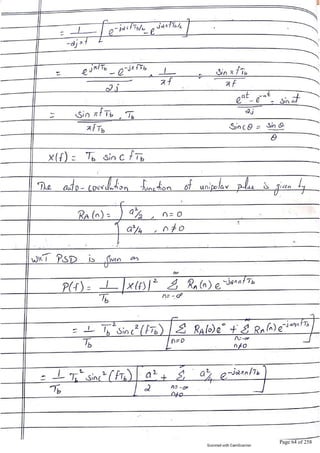 = 1/-j2πf [ e^-j2πfTb/2 - e^j2πfTb/2 ]
= e^jπfTb - e^-jπfTb / 2j . 1/πf = Sin πfTb / πf
= Sin πfTb / πfTb . Tb
Sinc θ = Sin θ / θ
X(f) = Tb Sin C fTb
The auto-correlation function of unipolar pulse is given by
RA(n) = { a²/2 , n=0
a²/4 , n≠0
WKT PSD is given as
P(f) = 1/Tb |X(f)|² Σ n=-∞ ∞ RA(n) e^-j2πnfTb
= 1/Tb Tb² Sinc²(fTb) [ Σ n=0 RA(0)e° + Σ n=-∞ n≠0 ∞ RA(n)e^-j2πnfTb ]
= 1/Tb Tb² Sinc²(fTb) [ a²/2 + Σ n=-∞ n≠0 ∞ a²/4 e^-j2πnfTb ]
Scanned with CamScanner
Page 64 of 258